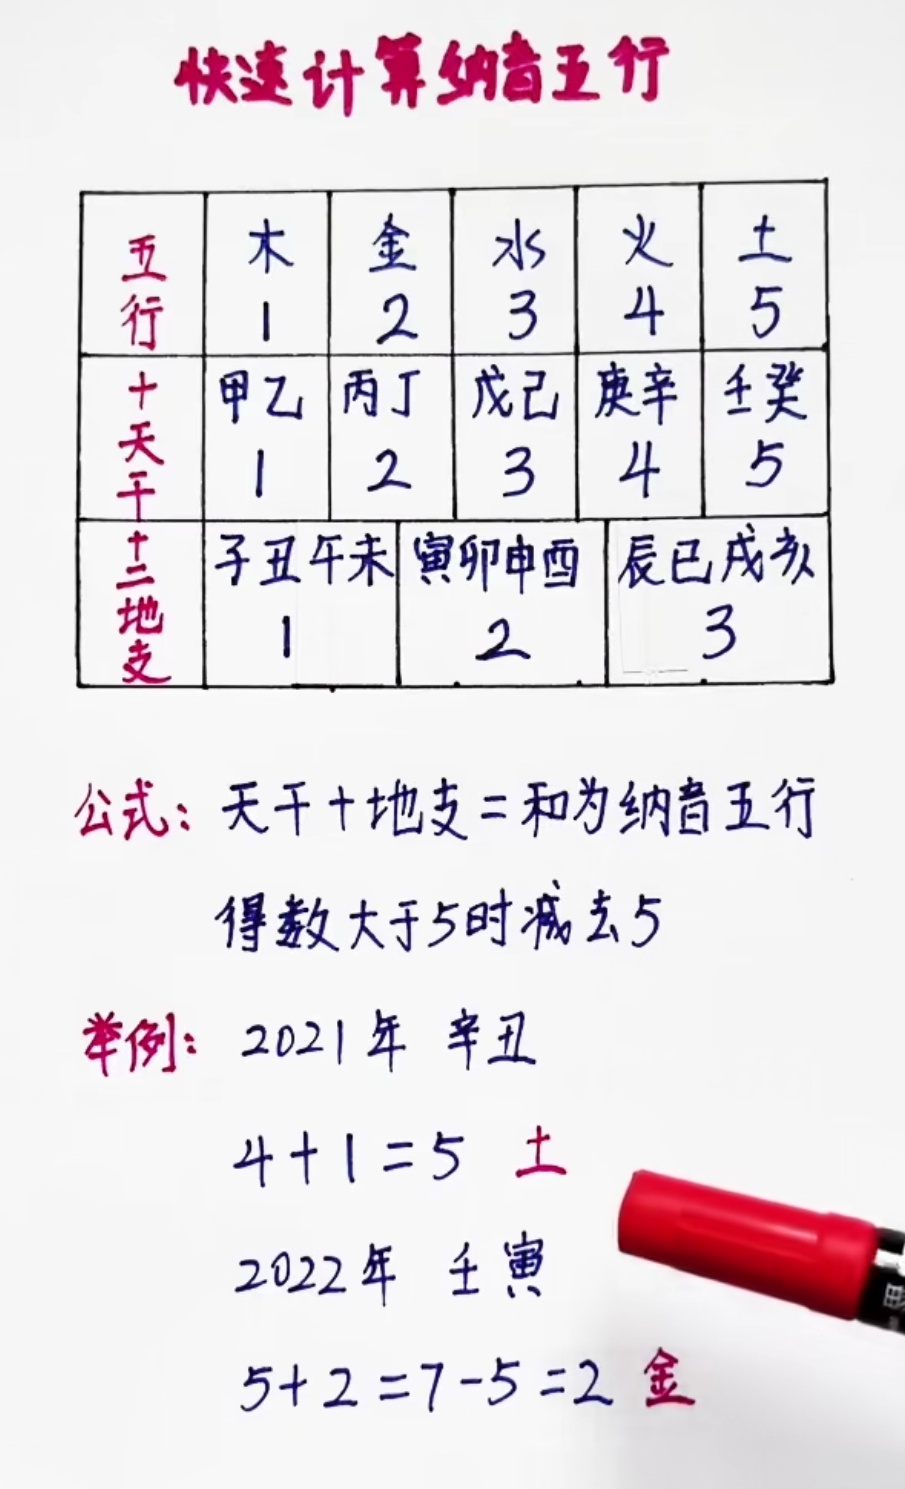 快速计算纳音五行
五行 木 金 水 火 土
1 2 3 4 5
十天干 甲乙 丙丁 戊己 庚辛 壬癸
1 2 3 4 5
十二地支 子丑午未 寅卯申酉 辰巳戌亥
1 2 3
公式：天干+地支=和为纳音五行
得数大于5时减去5
举例：2021年 辛丑
4+1=5 土
2022年 壬寅
5+2=7-5=2 金